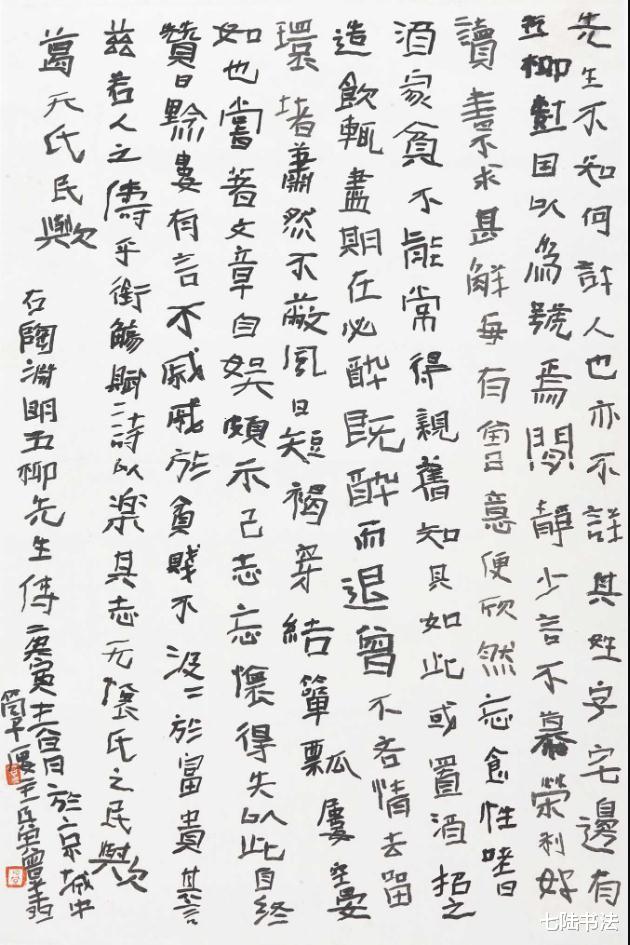 先生不知何許人也亦不詳其姓字宅邊有
五柳對因以為號焉閒靜少言不慕榮利好
讀書不求甚解每有會意便欣然忘食性嗜
酒家貧不能常得親舊知其如此或置酒招之
造飲輒盡期在必醉既醉而退曾不吝情去留
環堵蕭然不蔽風日短褐穿結簞瓢屢空晏
如也嘗著文章自娛頗示己志忘懷得失以此自終
贊曰黔婁有言不戚戚於貧賤不汲二於富貴其言
茲若人之儔乎銜觴賦二詩以樂其志无懷氏之民歟
葛天氏民歟
右陶淵明五柳先生傳庚寅於京城中
七陆书法